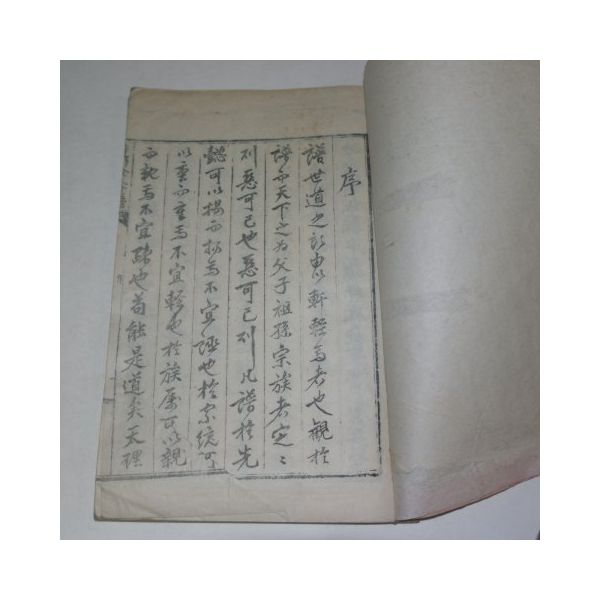 序
譜世道之所由以軒輊焉者也觀於
譜而天下之為父子祖孫宗族者定〻
則惡可已也惡可已則凡譜於先
懿可以揚而揚焉不宜湮也於宗統可
以重而重焉不宜輕也於族屬可以親
而親焉不宜踈也苟能是道矣天理